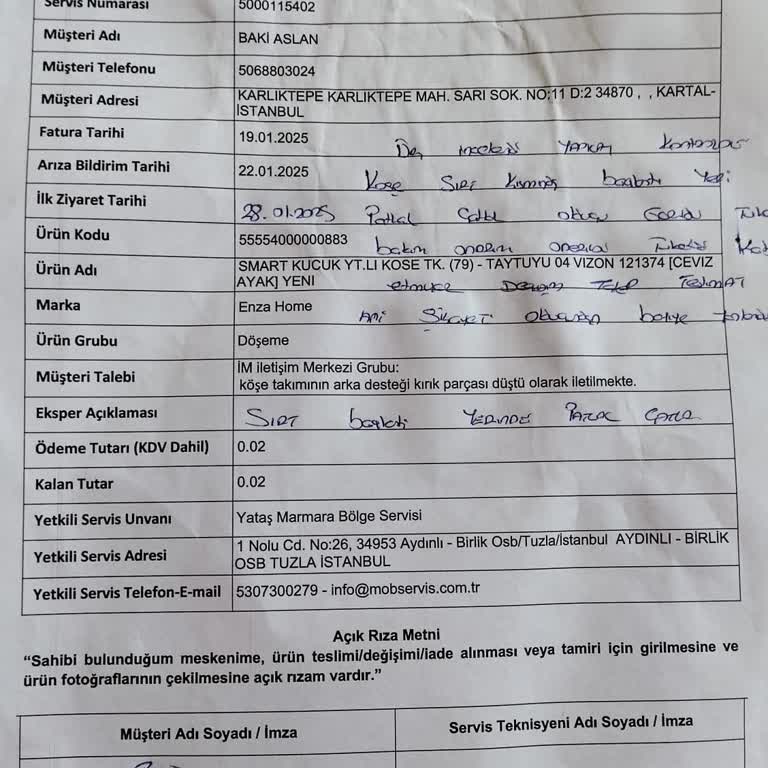 Servis Numarası 5000115402
Müşteri Adı BAKİ ASLAN
Müşteri Telefonu 5068803024
Müşteri Adresi KARLIKTEPE KARLIKTEPE MAH. SARI SOK. NO:11 D:2 34870 , , KARTAL-
İSTANBUL
Fatura Tarihi 19.01.2025
Arıza Bildirim Tarihi 22.01.2025
Köşe Sırt
İlk Ziyaret Tarihi 28.01.2025
Ürün Kodu 55554000000883
bakım onarım
Ürün Adı SMART KUCUK YT.LI KOSE TK. (79) - TAYTUYU 04 VIZON 121374 [CEVIZ
AYAK] YENI
Marka Enza Home
Ürün Grubu Döşeme
Müşteri Talebi İM iletişim Merkezi Grubu:
köşe takımının arka desteği kırık parçası düştü olarak iletilmekte.
Eksper Açıklaması SIRT bağlantı YERİNDE
Ödeme Tutarı (KDV Dahil) 0.02
Kalan Tutar 0.02
Yetkili Servis Unvanı Yataş Marmara Bölge Servisi
Yetkili Servis Adresi 1 Nolu Cd. No:26, 34953 Aydınlı - Birlik Osb/Tuzla/İstanbul AYDINLI - BİRLİK
OSB TUZLA İSTANBUL
Yetkili Servis Telefon-E-mail 5307300279 - info@mobservis.com.tr
Açık Rıza Metni
“Sahibi bulunduğum meskenime, ürün teslimi/değişimi/iade alınması veya tamiri için girilmesine ve
ürün fotoğraflarının çekilmesine açık rızam vardır.”
Müşteri Adı Soyadı / İmza Servis Teknisyeni Adı Soyadı / İmza